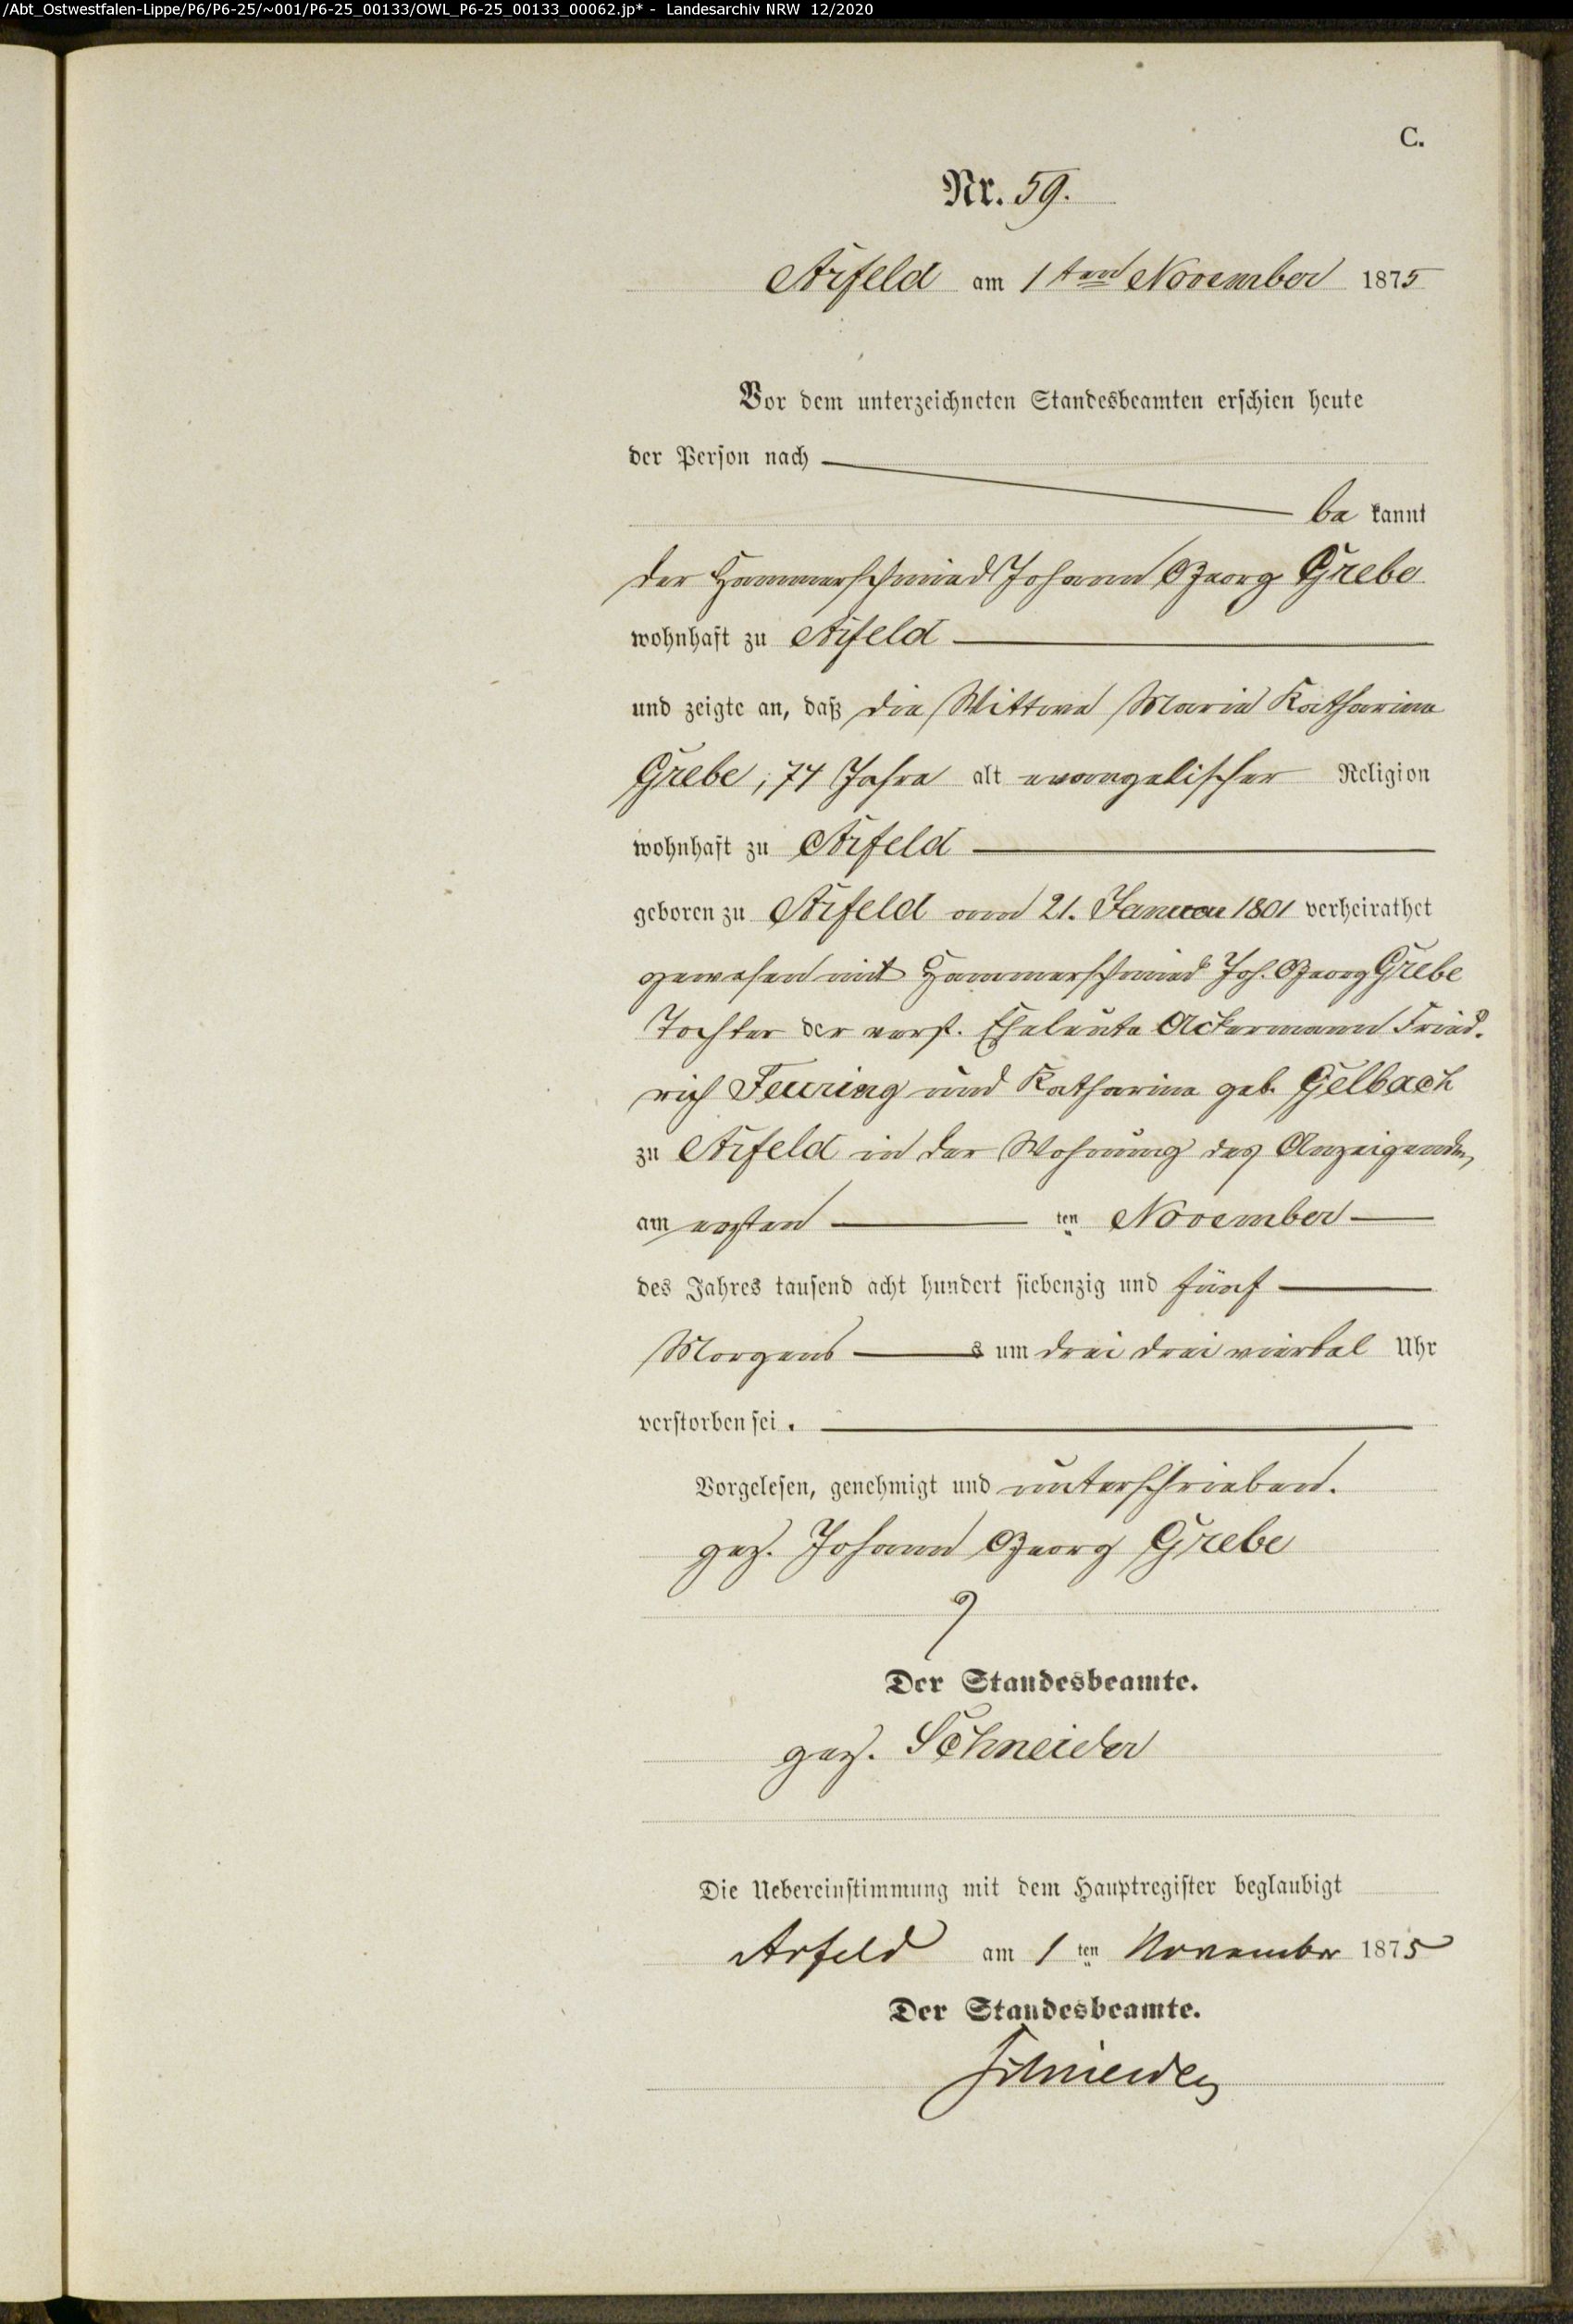 /Abt_Ostwestfalen-Lippe/P6/P6-25/~001/P6-25_00133/OWL_P6-25_00133_00062.jp* - Landesarchiv NRW 12/2020
C.
Nr. 59.
Arfeld am 1ten November 1875
Vor dem unterzeichneten Standesbeamten erschien heute
der Person nach
be kannt
der Hammerschmied Johann Georg Grebe
wohnhaft zu Arfeld
und zeigte an, daß die Wittwe Maria Katharina
Grebe, 74 Jahre alt evangelischer Religion
wohnhaft zu Arfeld
geboren zu Arfeld am 21. Januar 1801 verheirathet
gewesen mit Hammerschmied Joh. Georg Grebe
Tochter der verst. Eheleute Ackermann Fried.
rich Feuring und Katharina geb. Gelbach
zu Arfeld in der Wohnung des Anzeigenden,
am ersten ten November
des Jahres tausend acht hundert siebenzig und fünf
Morgens s um drei drei viertel Uhr
verstorben sei.
Vorgelesen, genehmigt und unterschrieben.
gez. Johann Georg Grebe
Der Standesbeamte.
gez. Schneider
Die Uebereinstimmung mit dem Hauptregister beglaubigt
Arfeld am 1 ten November 1875
Der Standesbeamte.
Schneider